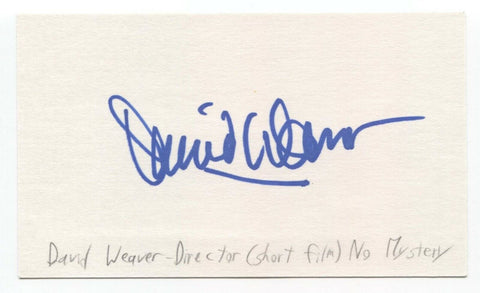 David Weaver
David Weaver-Director (short film) No Mystery